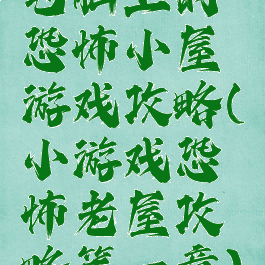 老脑上的
恐怖小屋
游戏攻略(
小游戏恐
怖老屋攻
略第一章)